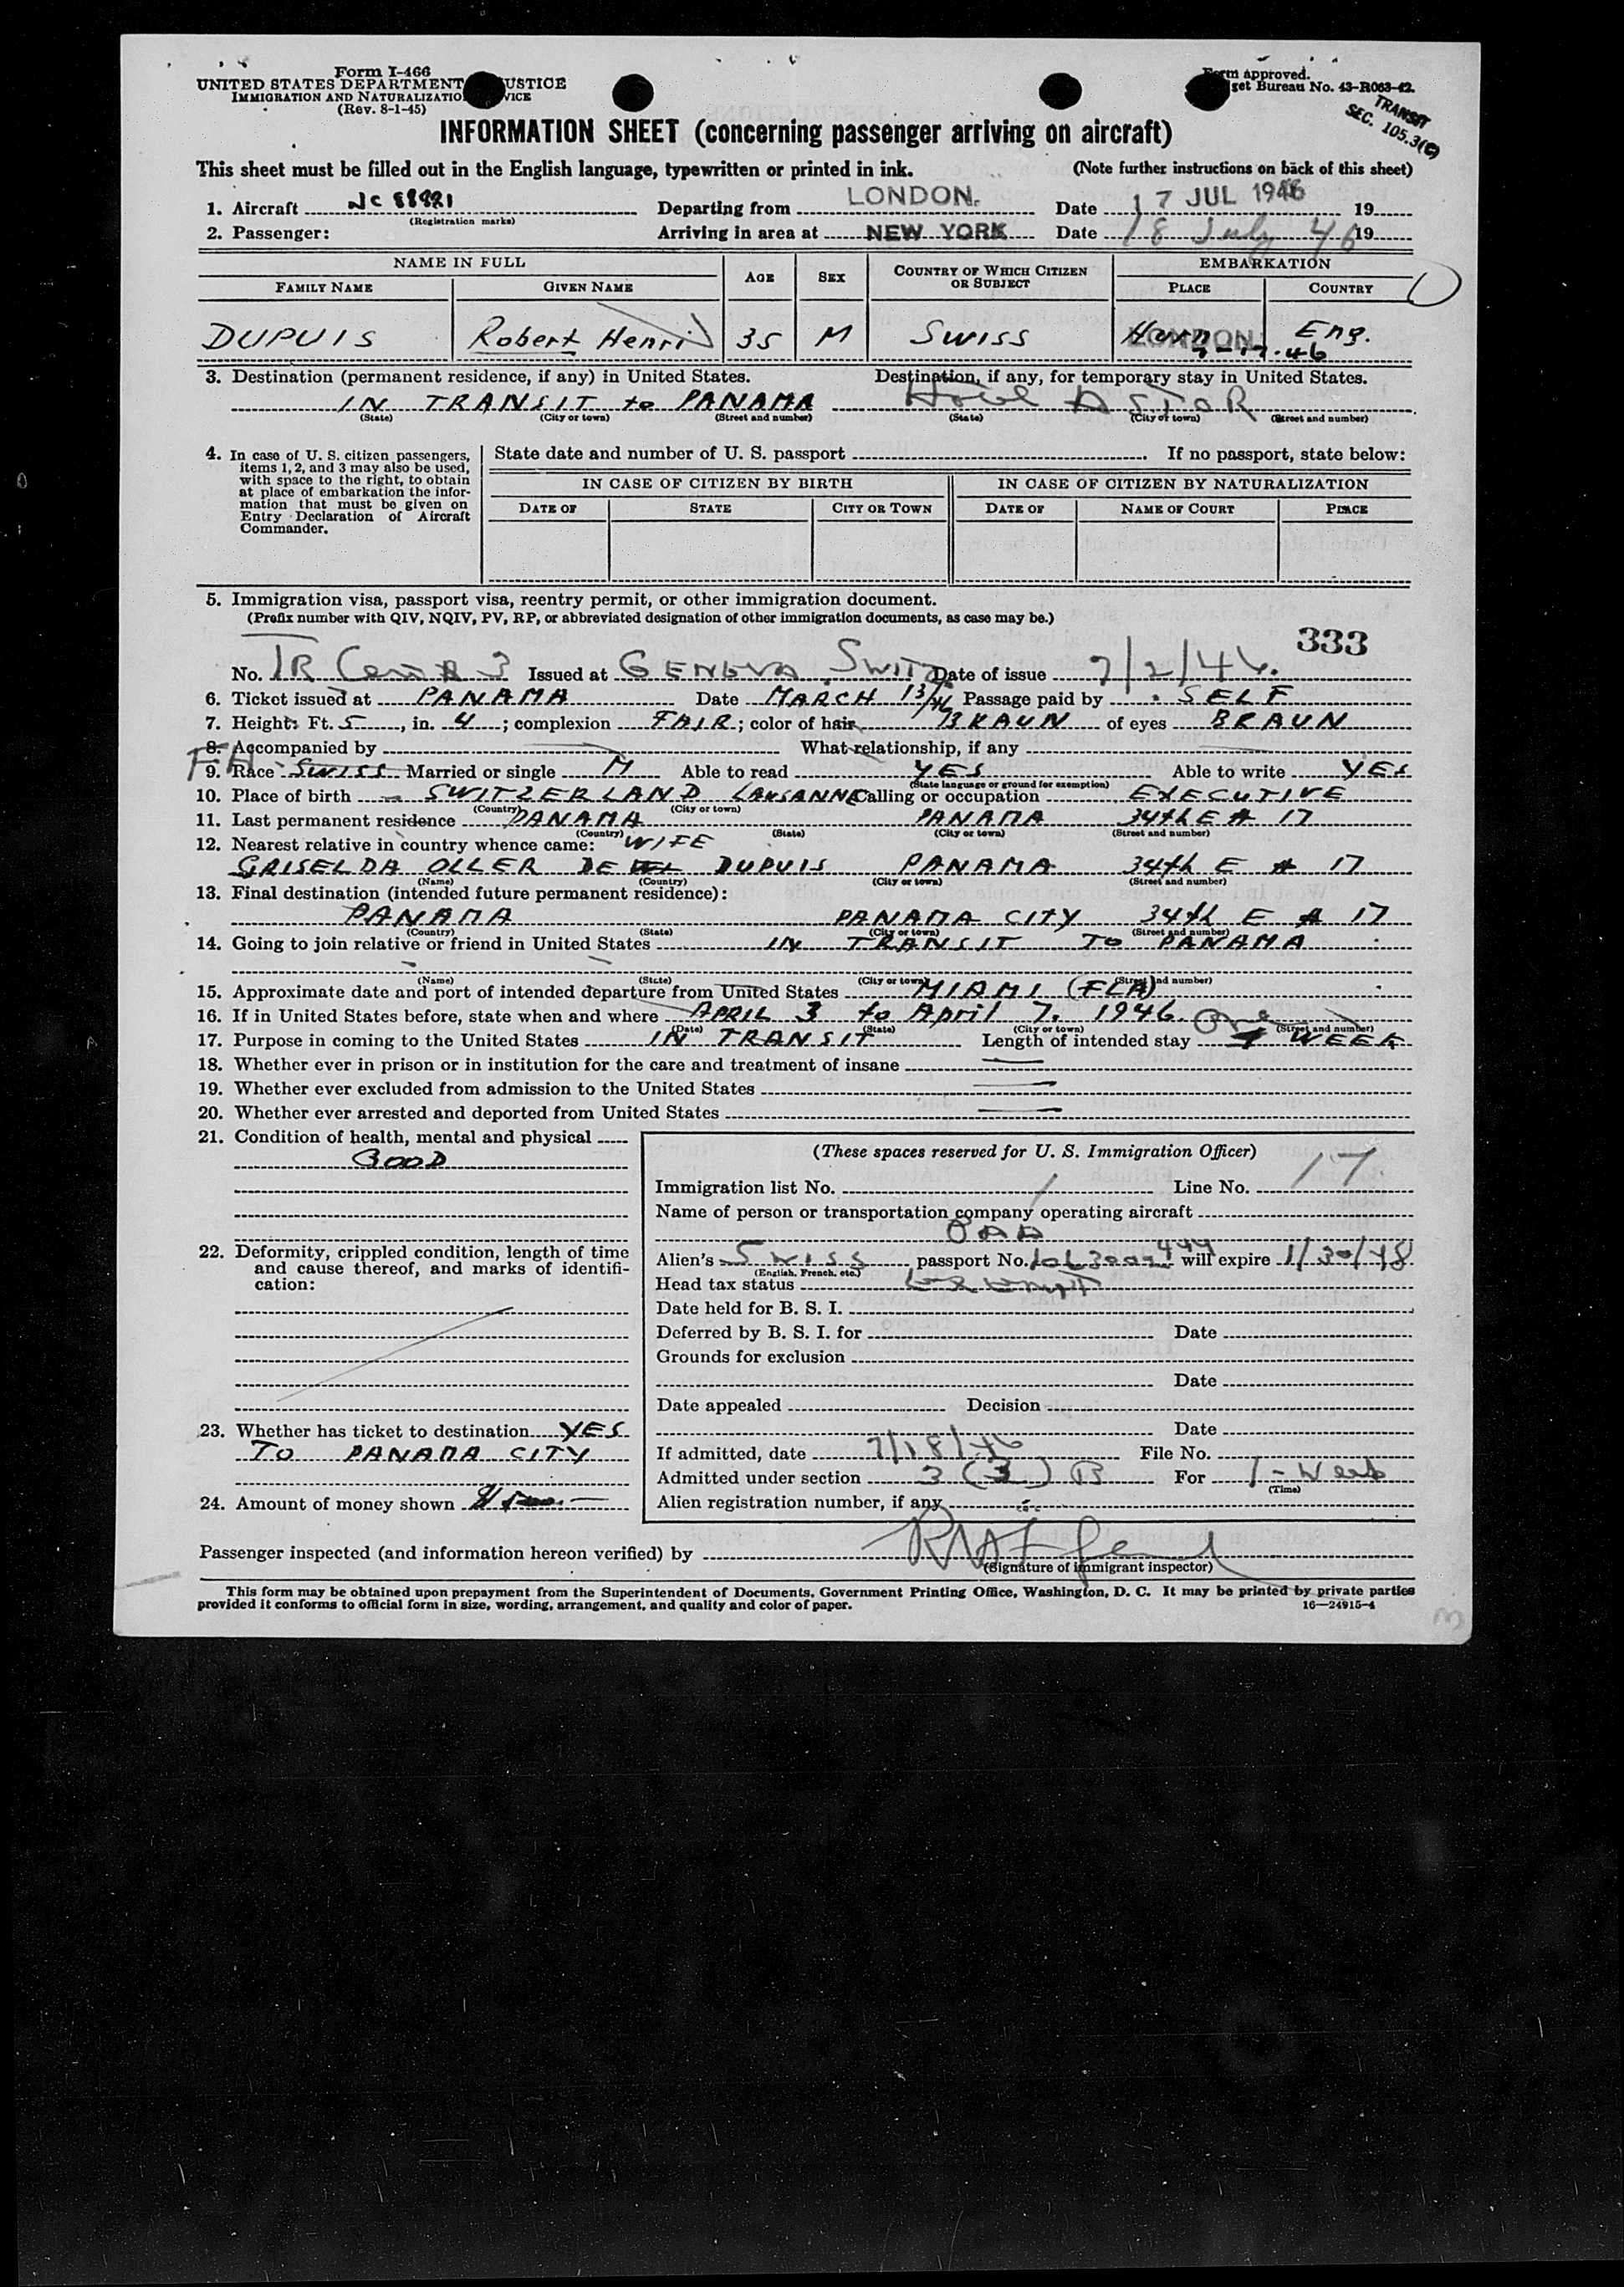 Form I-466
UNITED STATES DEPARTMENT JUSTICE
IMMIGRATION AND NATURALIZATION
(Rev. 8-1-45)
Form approved.
Budget Bureau No. 43-R063-42.
TRANSIT
SEC. 105.3(C)
INFORMATION SHEET (concerning passenger arriving on aircraft)
This sheet must be filled out in the English language, typewritten or printed in ink. (Note further instructions on back of this sheet)
1. Aircraft NC 88921 Departing from LONDON. Date 17 JUL 1946 19
(Registration marks)
2. Passenger: Arriving in area at NEW YORK Date 18 July 46 19
NAME IN FULL AGE SEX COUNTRY OF WHICH CITIZEN OR SUBJECT EMBARKATION
FAMILY NAME GIVEN NAME PLACE COUNTRY
DUPUIS Robert Henri 35 M SWISS LONDON Eng.
7-17-46
3. Destination (permanent residence, if any) in United States. Destination, if any, for temporary stay in United States.
IN TRANSIT to PANAMA Hotel ASTOR
(State) (City or town) (Street and number) (State) (City or town) (Street and number)
4. In case of U. S. citizen passengers, items 1, 2, and 3 may also be used, with space to the right, to obtain at place of embarkation the information that must be given on Entry Declaration of Aircraft Commander.
State date and number of U. S. passport If no passport, state below:
IN CASE OF CITIZEN BY BIRTH IN CASE OF CITIZEN BY NATURALIZATION
DATE OF STATE CITY OR TOWN DATE OF NAME OF COURT PLACE
5. Immigration visa, passport visa, reentry permit, or other immigration document.
(Prefix number with QIV, NQIV, PV, RP, or abbreviated designation of other immigration documents, as case may be.)
333
No. TR Cert # 3 Issued at GENEVA SWITZ Date of issue 7/2/46.
6. Ticket issued at PANAMA Date MARCH 13/46 Passage paid by SELF
7. Height: Ft. 5, in. 4; complexion FAIR; color of hair BRAUN of eyes BRAUN
8. Accompanied by What relationship, if any
9. Race SWISS Married or single M Able to read YES Able to write YES
(State language or ground for exemption)
10. Place of birth SWITZERLAND LAUSANNE Calling or occupation EXECUTIVE
(Country) (City or town)
11. Last permanent residence PANAMA PANAMA 34th E # 17
(Country) (State) (City or town) (Street and number)
12. Nearest relative in country whence came: WIFE
GRISELDA OLLER DE DUPUIS PANAMA 34th E # 17
(Name) (Country) (City or town) (Street and number)
13. Final destination (intended future permanent residence):
PANAMA PANAMA CITY 34th E # 17
(Country) (State) (City or town) (Street and number)
14. Going to join relative or friend in United States IN TRANSIT TO PANAMA
(Name) (State) (City or town) (Street and number)
15. Approximate date and port of intended departure from United States MIAMI (FLA)
16. If in United States before, state when and where APRIL 3 to April 7. 1946
(Date) (State) (City or town) (Street and number)
17. Purpose in coming to the United States IN TRANSIT Length of intended stay One WEEK
18. Whether ever in prison or in institution for the care and treatment of insane
19. Whether ever excluded from admission to the United States
20. Whether ever arrested and deported from United States
21. Condition of health, mental and physical
GOOD
22. Deformity, crippled condition, length of time and cause thereof, and marks of identification:
23. Whether has ticket to destination YES
TO PANAMA CITY
24. Amount of money shown
(These spaces reserved for U. S. Immigration Officer)
Immigration list No. 1 Line No. 17
Name of person or transportation company operating aircraft
OAA
Alien's Swiss passport No. will expire 1/30/48
(English, French, etc.)
Head tax status exempt
Date held for B. S. I.
Deferred by B. S. I. for Date
Grounds for exclusion
Date
Date appealed Decision
Date
If admitted, date 7/18/46 File No.
Admitted under section 3 (3) B For 1 - Week
(Time)
Alien registration number, if any
Passenger inspected (and information hereon verified) by
(Signature of immigrant inspector)
This form may be obtained upon prepayment from the Superintendent of Documents, Government Printing Office, Washington, D. C. It may be printed by private parties
provided it conforms to official form in size, wording, arrangement, and quality and color of paper. 16—24915-4
3